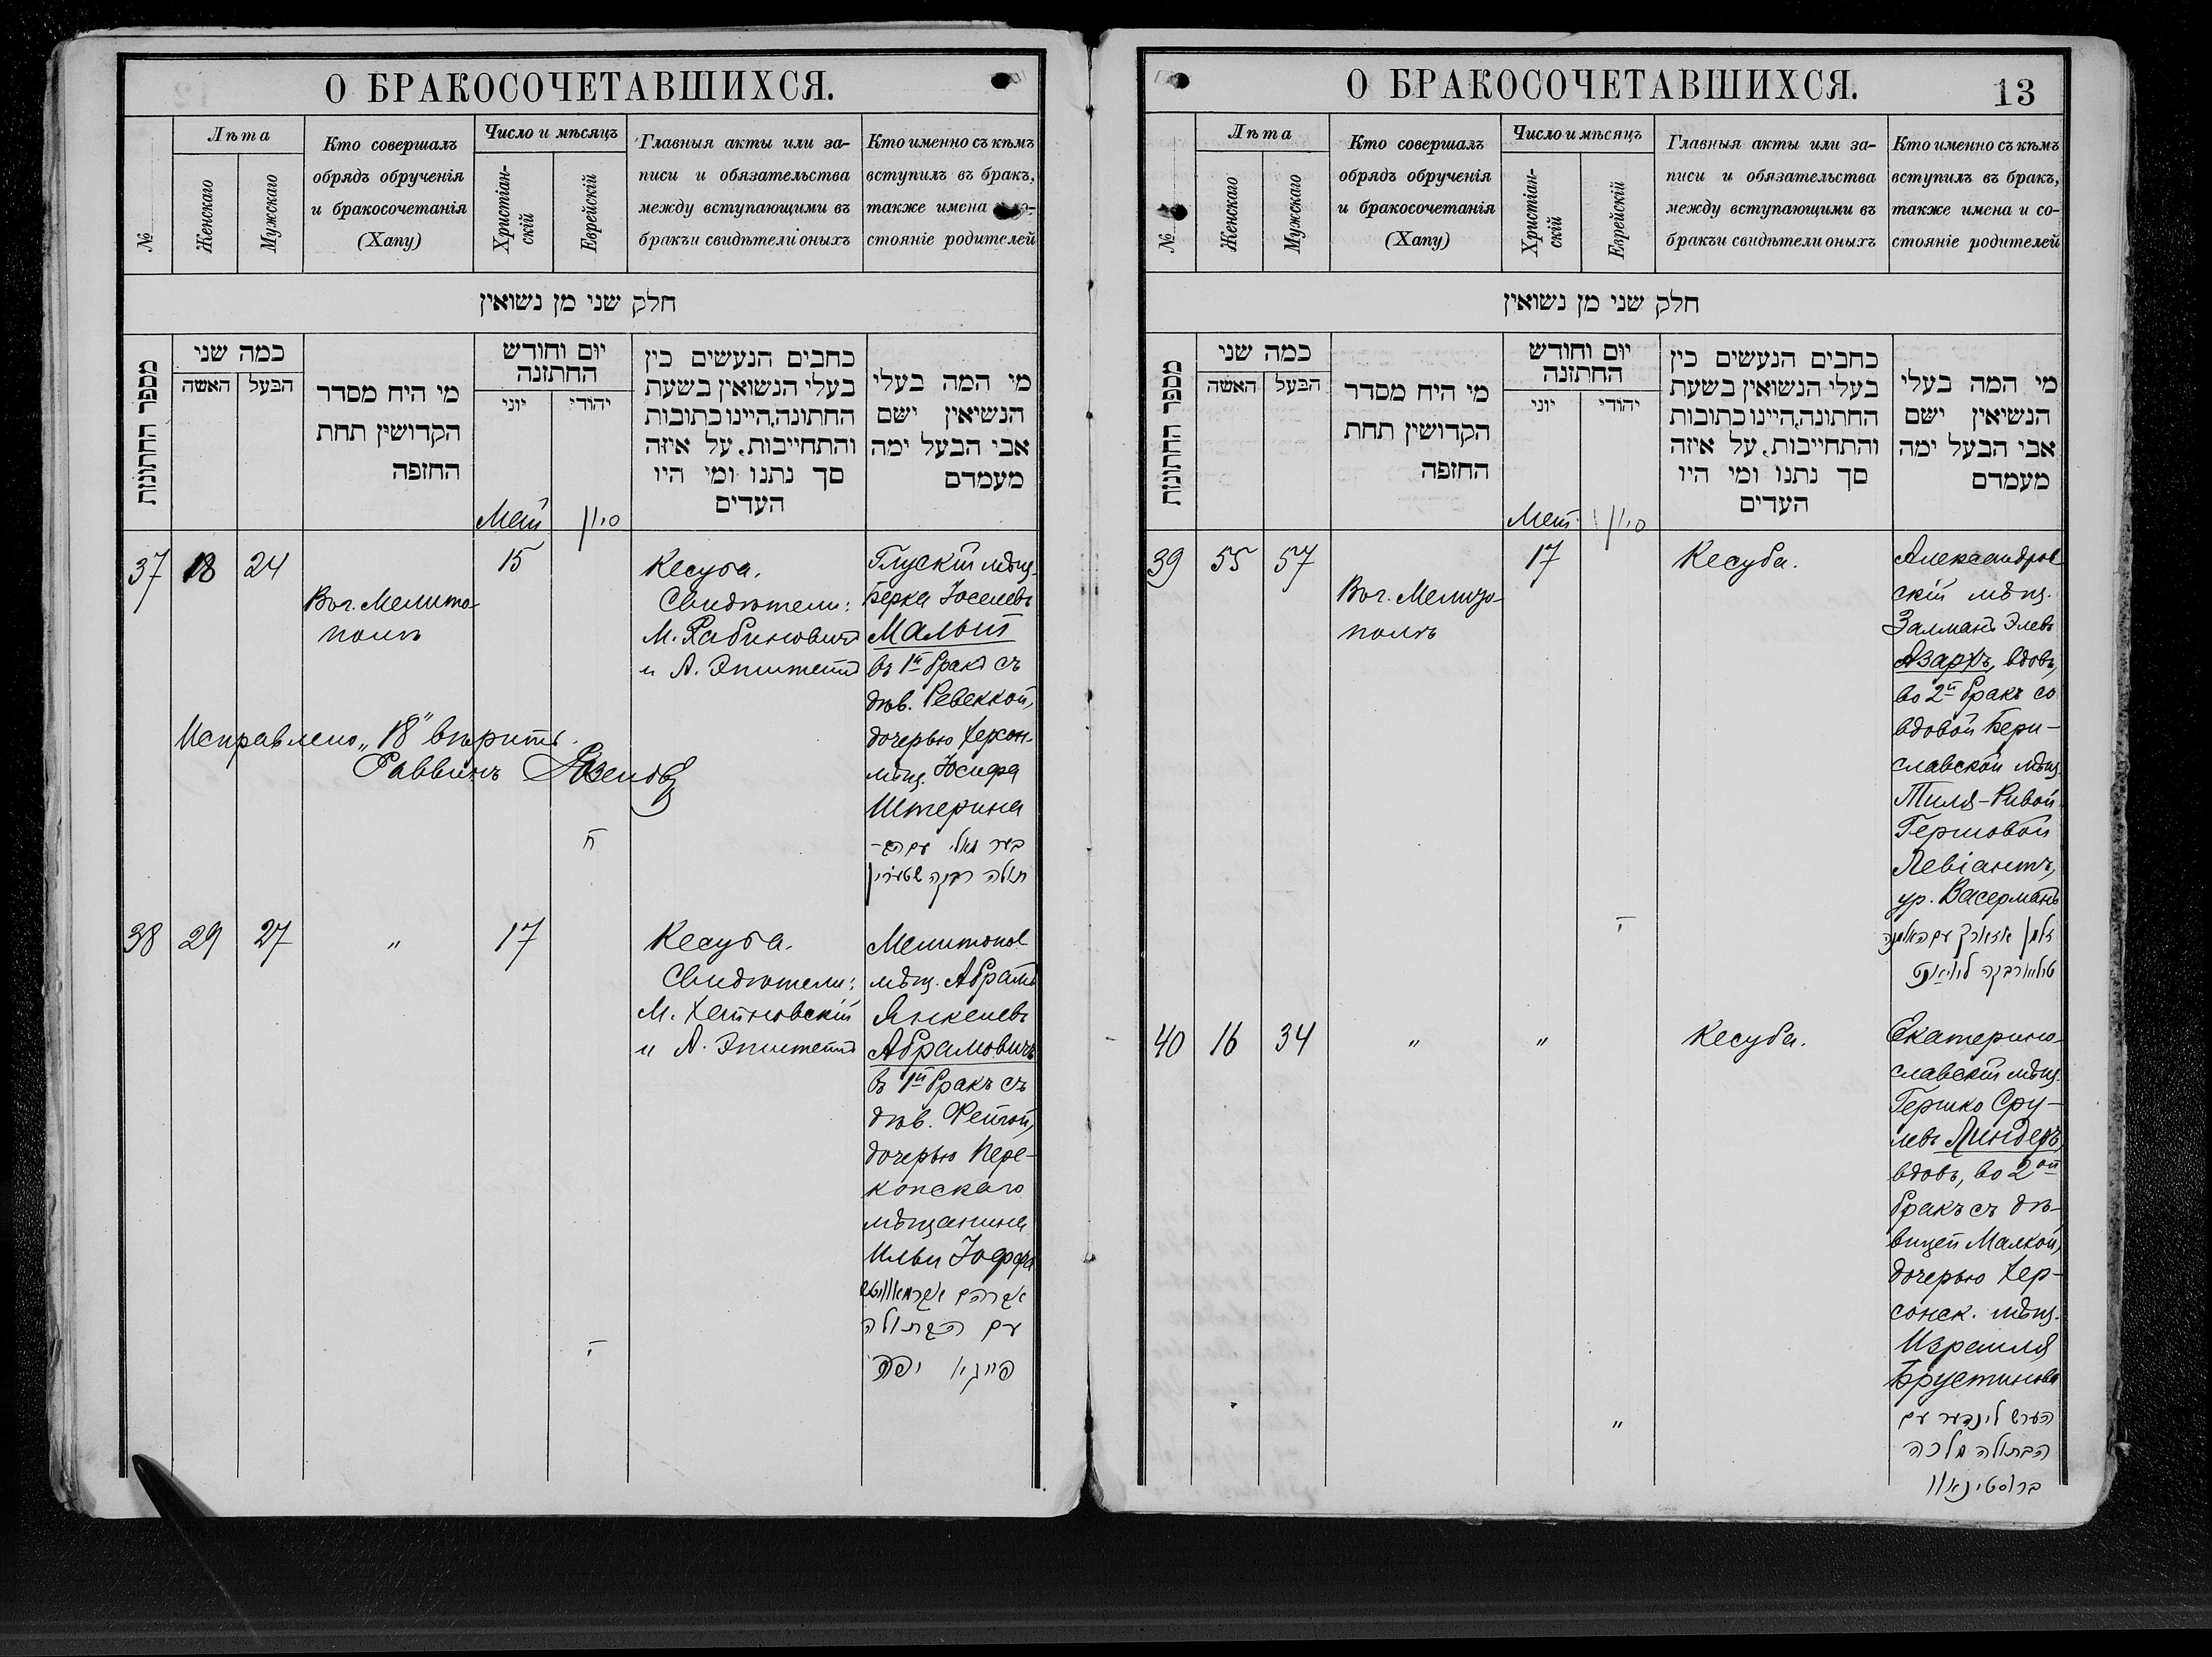 О БРАКОСОЧЕТАВШИХСЯ.
№
Лѣта
Женскаго
Мужскаго
Кто совершалъ
обрядъ обрученія
и бракосочетанія
(Хапу)
Число и мѣсяцъ
Христіан-
скій
Еврейскій
Главныя акты или за-
писи и обязательства
между вступающими въ
бракъи свидѣтели оныхъ
Кто именно съ кѣмъ
вступилъ въ бракъ,
также имена
стояніе родителей
חלק שני מן נשואין
מספר החתונות
כמה שני
האשה
הבעל
מי היח מסדר
הקדושין תחת
החופה
יום וחודש
החתונה
יוני
יהודי
כחבים הנעשים כין
בעלי הנשואין בשעת
החתונה,היינו כתובות
והתחייבות, על איזה
סך נתנו ומי היו
העדים
מי המה בעלי
הנשיאין ישם
אבי הבעל ימה
מעמדם
Май
סיון
37
18
24
Въ г. Мелито-
полѣ
15
Кесуба.
Свидѣтели:
М. Рабиновичъ
и А. Эпштейнъ
Глускій мѣщ.
Берка Іоселевъ
Малый
въ 1й бракъ съ
дѣв. Ревеккой,
дочерью Херсон.
мѣщ. Іосифа
Штерина
Исправлено „18" вѣрить.
Раввинъ
ח
בתולה רבקה שטערין
38
29
27
"
17
Кесуба.
Свидѣтели:
М. Хейновскій
и А. Эпштейнъ
Мелитопол
мѣщ. Абрамъ
Янкелевъ
Абрамовичъ
въ 1й бракъ съ
дѣв. Фейгой,
дочерью Пере-
копскаго
мѣщанина
Ильи Іоффа
אברהם אבראמאוויטש
עם הבתולה
פייגא יפה
י
О БРАКОСОЧЕТАВШИХСЯ.
13
№
Лѣта
Женскаго
Мужскаго
Кто совершалъ
обрядъ обрученія
и бракосочетанія
(Хапу)
Число и мѣсяцъ
Христіан-
скій
Еврейскій
Главныя акты или за-
писи и обязательства
между вступающими въ
бракъи свидѣтели оныхъ
Кто именно съ кѣмъ
вступилъ въ бракъ,
также имена и со-
стояніе родителей
חלק שני מן נשואין
מספר החתונות
כמה שני
האשה
הבעל
מי היח מסדר
הקדושין תחת
החופה
יום וחודש
החתונה
יוני
יהודי
כחבים הנעשים כין
בעלי הנשואין בשעת
החתונה,היינו כתובות
והתחייבות, על איזה
סך נתנו ומי היו
העדים
מי המה בעלי
הנשיאין ישם
אבי הבעל ימה
מעמדם
Май
סיון
39
55
57
Въ г. Мелито-
полѣ
17
Кесуба.
Александров
скій мѣщ.
Залманъ Элевъ
Азархъ, вдовъ,
во 2й бракъ со
вдовой Бери-
славской мѣщ.
Тиля-Ривой
Гершовой
Левіантъ,
ур. Васерманъ
י
זלמן אזארך עם האלמנה
טיליא רבקה לוויאנט
40
16
34
"
"
Кесуба.
Екатерино-
славскій мѣщ.
Гершко Сру-
левъ Линдеръ
вдовъ, во 2ой
бракъ съ дѣ-
вицей Малкой,
дочерью Хер-
сонск. мѣщ.
Израиля
Брустинова
"
הערש לינדער עם
הבתולה מלכה
ברוסטינאוו